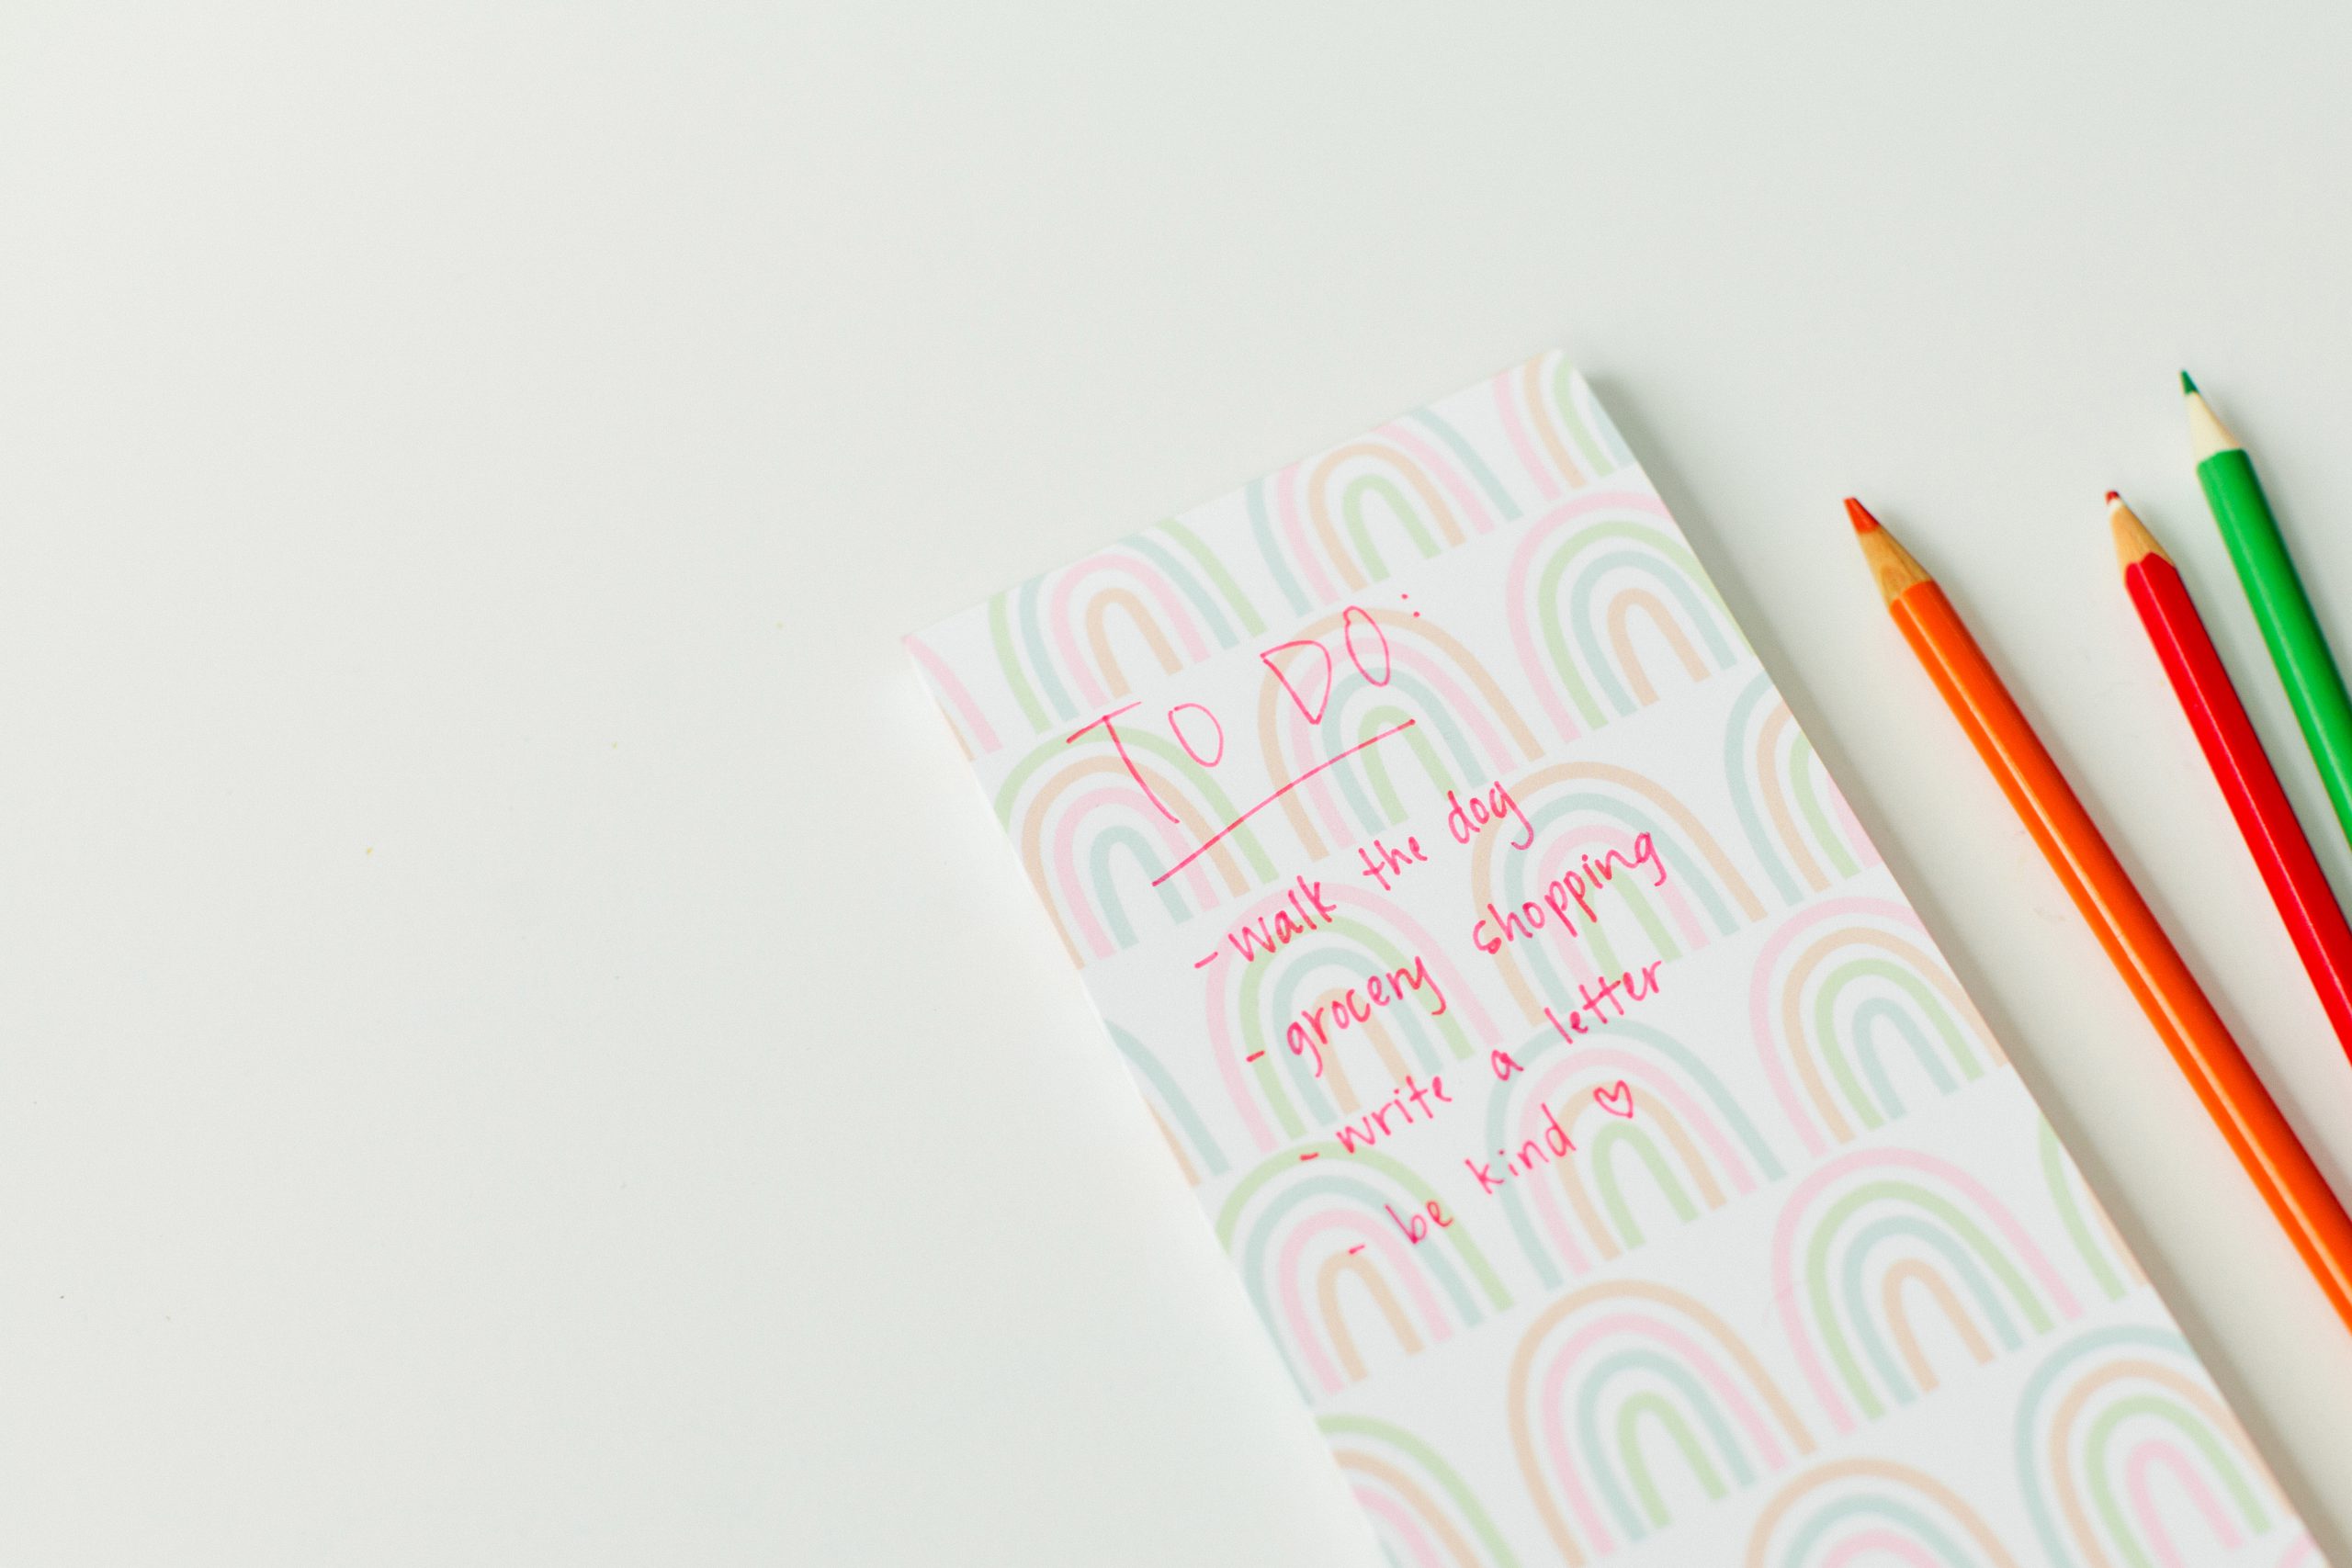 TO DO:
- walk the dog
- grocery shopping
- write a letter
- be kind ♡